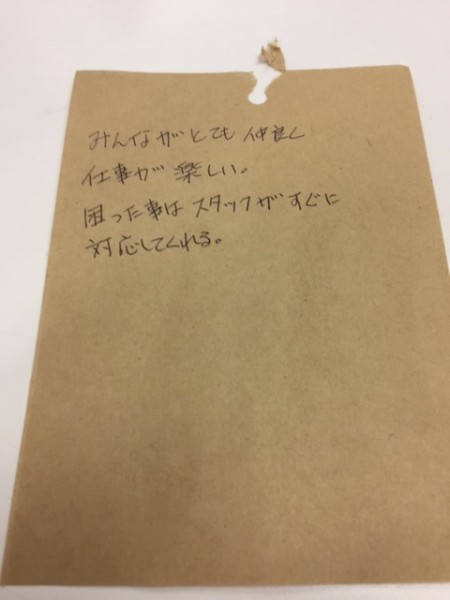 みんながとても仲良く
仕事が楽しい。
困った事はスタッフがすぐに
対応してくれる。